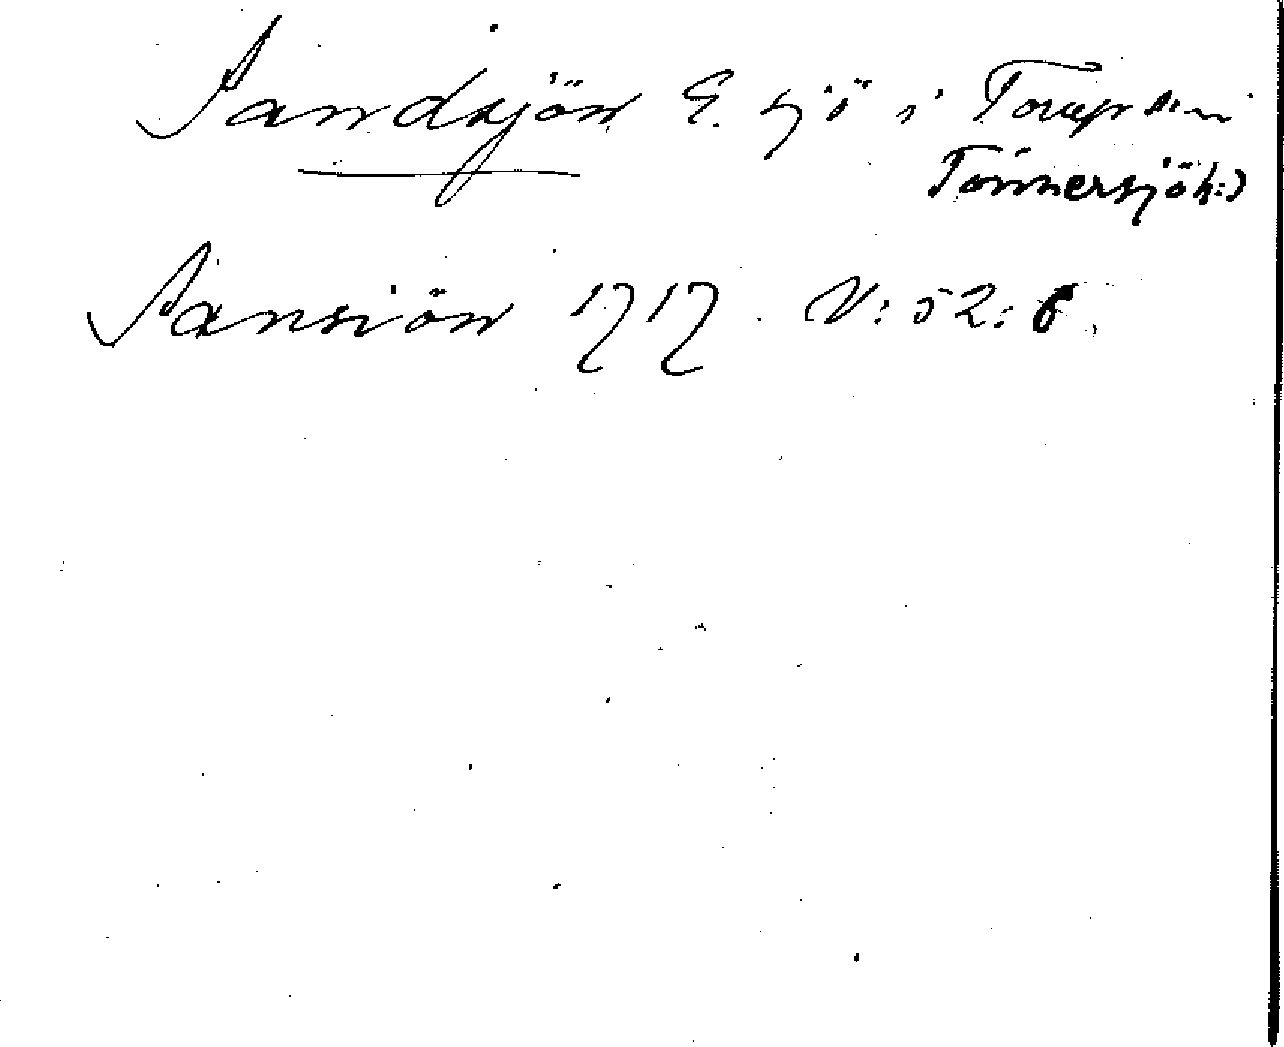 Sandsjön E. sjö i Torups sn
Tönnersjöh:d
Sansiön 1717. V:52:6.